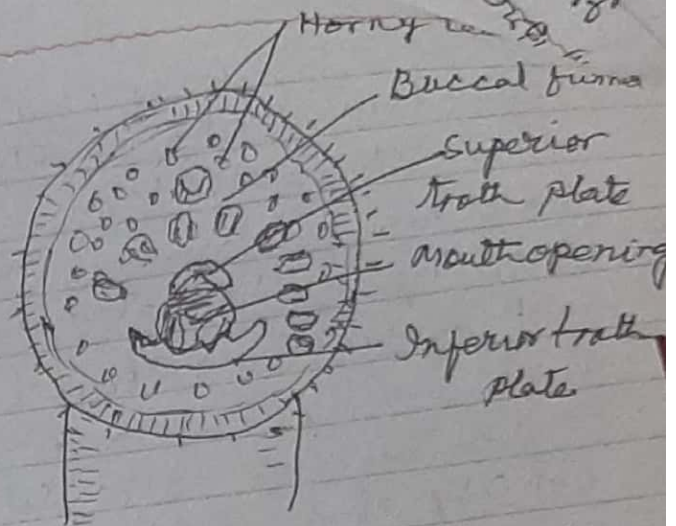 Horny
Buccal funne
Superior
troth plate
Mouth opening
Inferior troth
plate